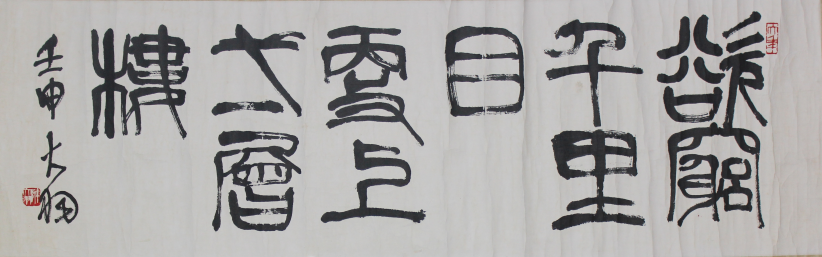 欲窮
千里
目
更上
弌層
樓
壬申大